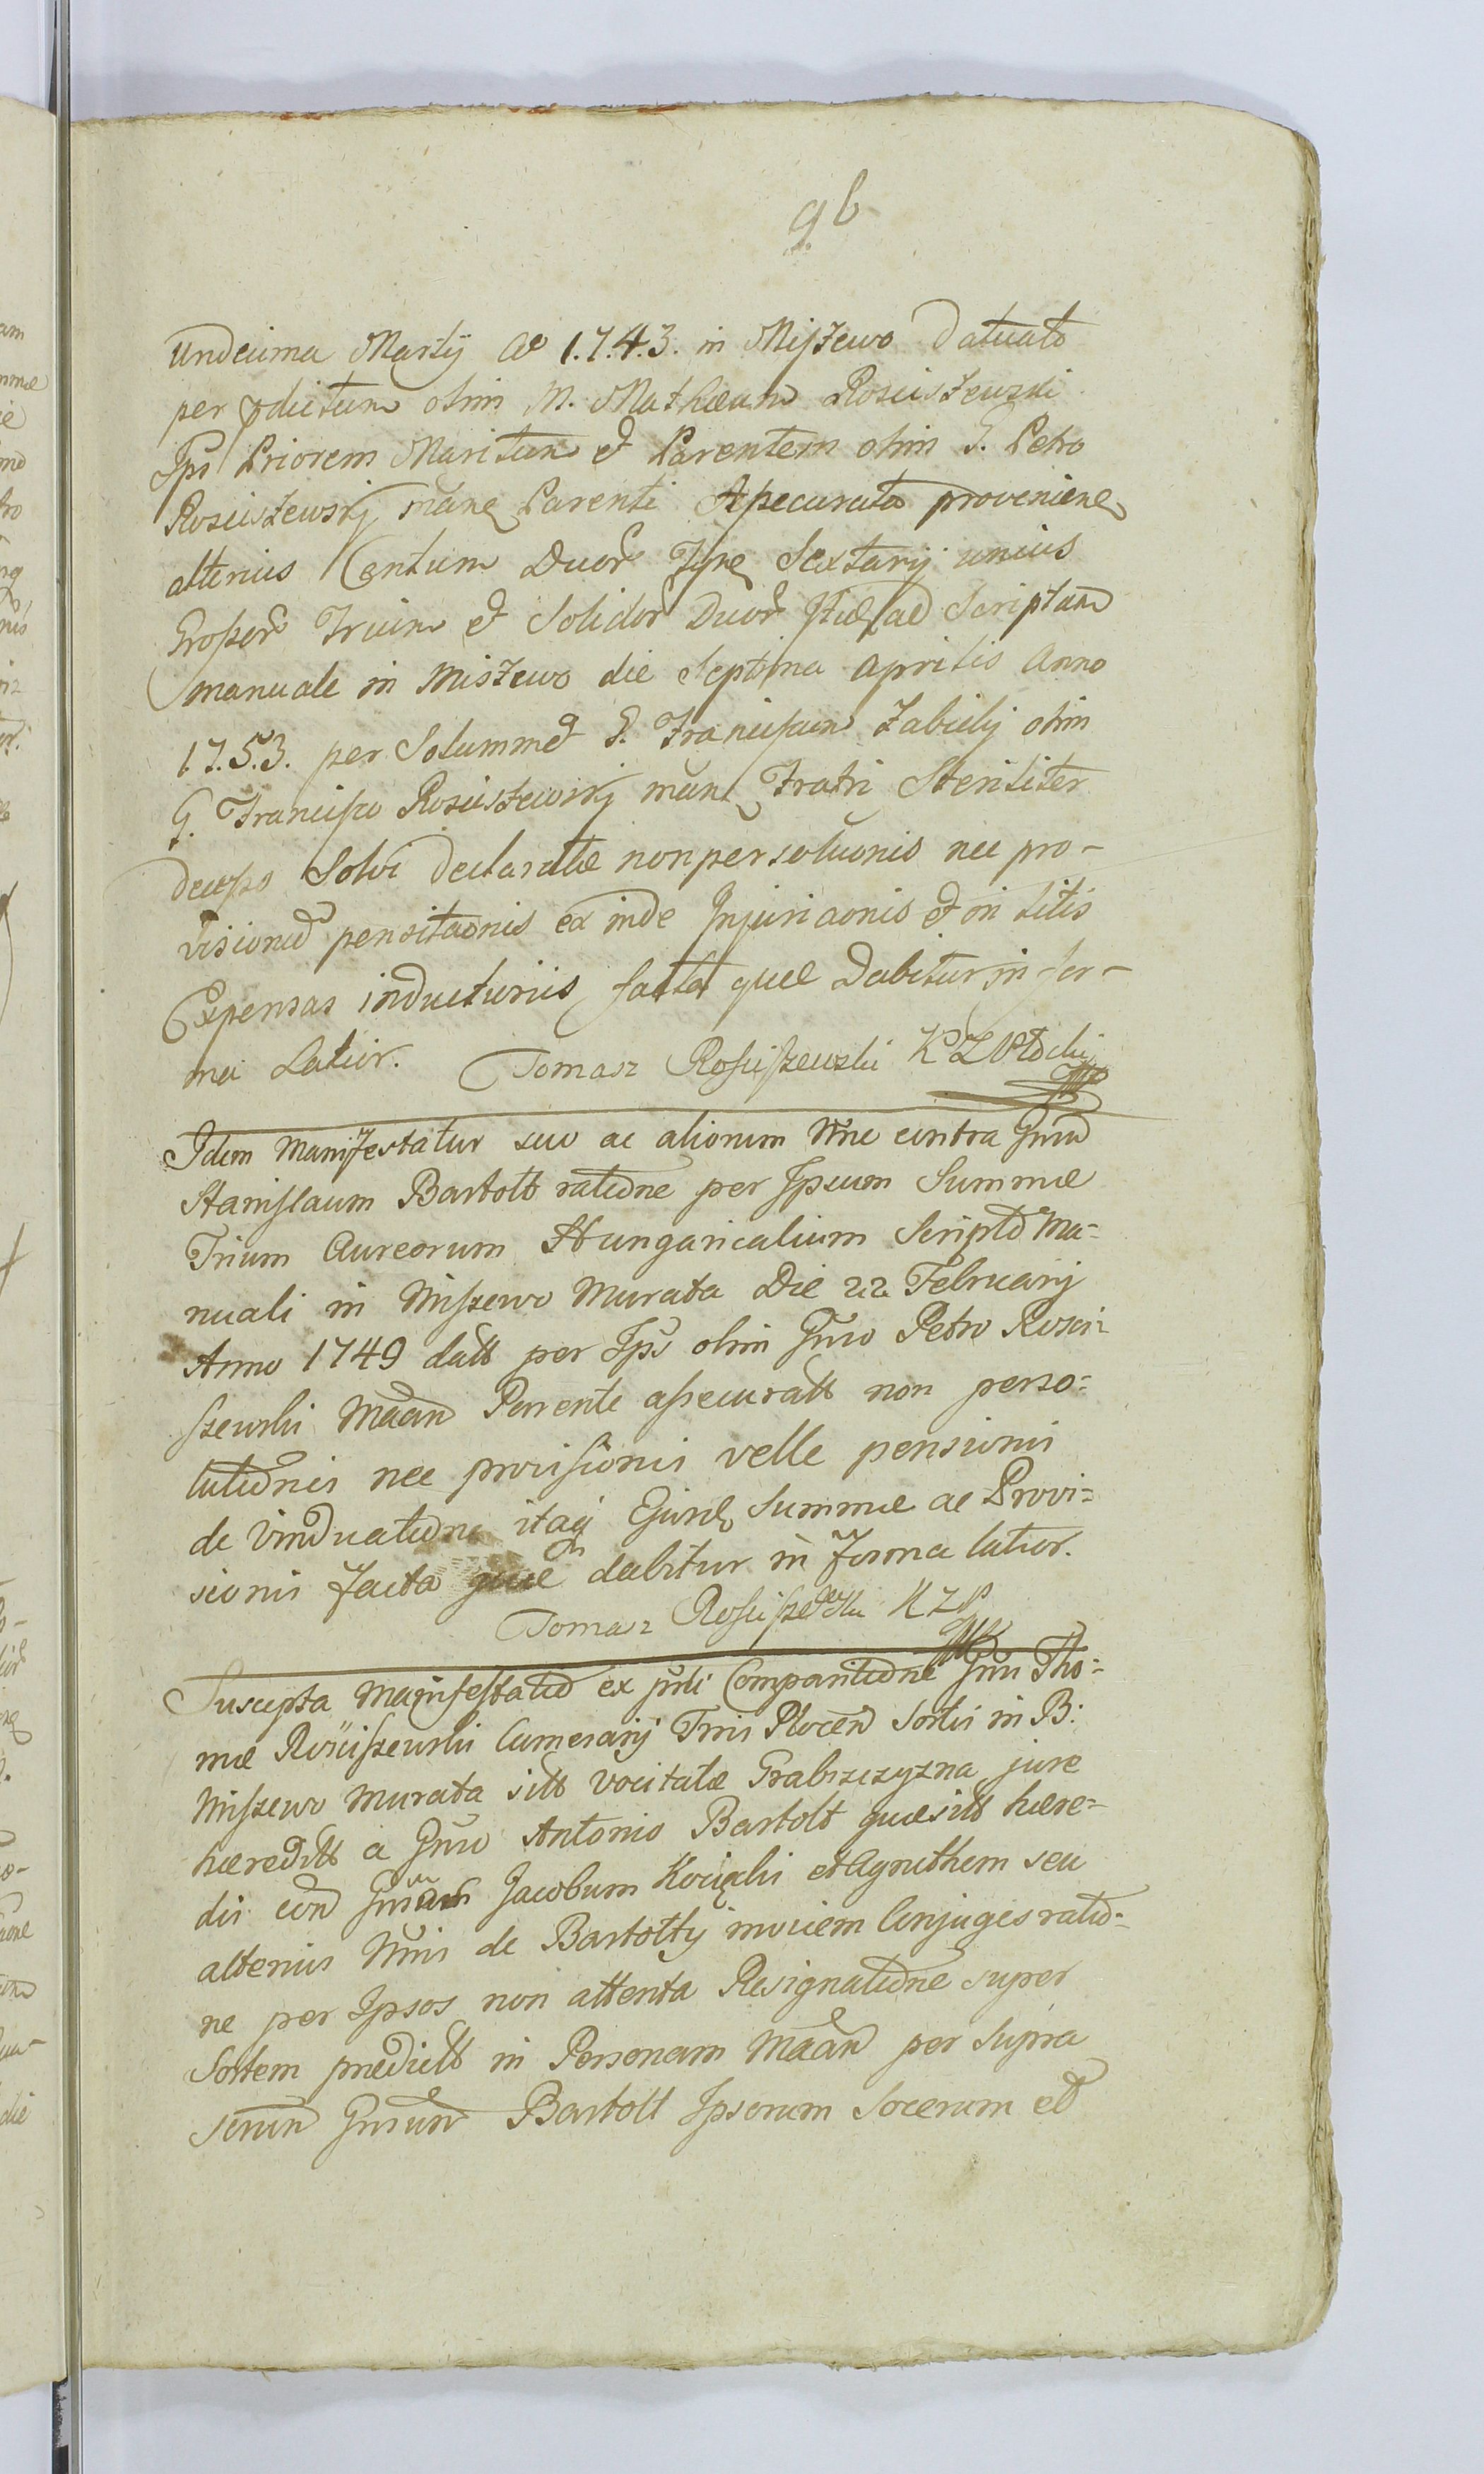 96
Undecima Martÿ Ao 1.7.4.3. in Miszewo Datuato
per pdictum olim M. Mathæum Rosciszewski
Ips Priorem Maritum et Parentem olim G. Petro
Rosciszewskj mane Parenti Assecurata provenien
alterius Centum Duor Tyne Sextarÿ unius
Grossor Trium et Solidor Duor ad Scriptam
manuale in Miszewo die Septima Aprilis Anno
1.7.5.3. per Solummet G. Franciscum Zabickj olim
G. Francisco Rosciszewskj man Fratri Steriliter
decesso Solvi declaratæ non persolucionis nec pro-
visioned pensitaonis ex inde Injuriaonis et in litis
Expensas inducturiis facta quæ Dabitur in for-
ma Latior. Tomasz Rosciszewski K Z Płocki
Idem Manifestatur suo ac aliorum Nne contra Gnm
Stanislaum Bartolt ratione per Ipsum Summæ
Trium Aureorum Hungaricalium Scripto Ma=
nuali in Miszewo Murata Die 22 Februarij
Anno 1749 datt per Ips olim Gnso Petro Rosci=
szewski Maan Parente assecuratt non perso=
lutionis nec provisionis velle pensionis
de Vinduatione itaq Ejusd Summæ ac Provi=
sionis facta quæ dabitur in forma latior.
Tomasz Rosciszewski K Z P
Suscepta Manifestatio ex psti Comparitione Gnsi Tho=
mæ Rosciszewski Camerarij Tris Plocen Sortis in B:
Miszewo Murata sitt Vocitatæ Grabszczyzna jure
hæreditt a Gnso Antonio Bartolt quæsitt hære=
dis con Gnsum Jacobum Kocięcki et Agnethem seu
alterius Nnis de Bartolty invicem Conjuges ratio=
ne per Ipsos non attenta Resignatione super
Sortem predictt in Personam Maan per supra
Gnsum Bartolt Ipsorum Socerum et